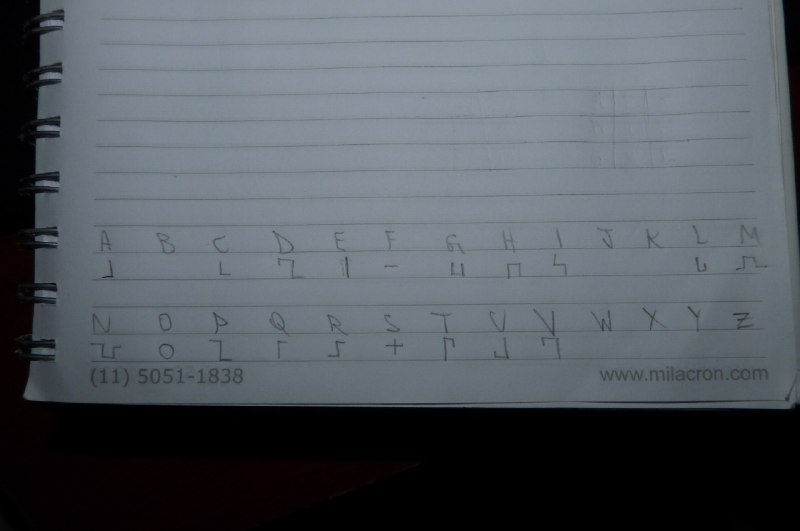 A B C D E F G H I J K L M
N O P Q R S T U V W X Y Z
(11) 5051-1838 www.milacron.com